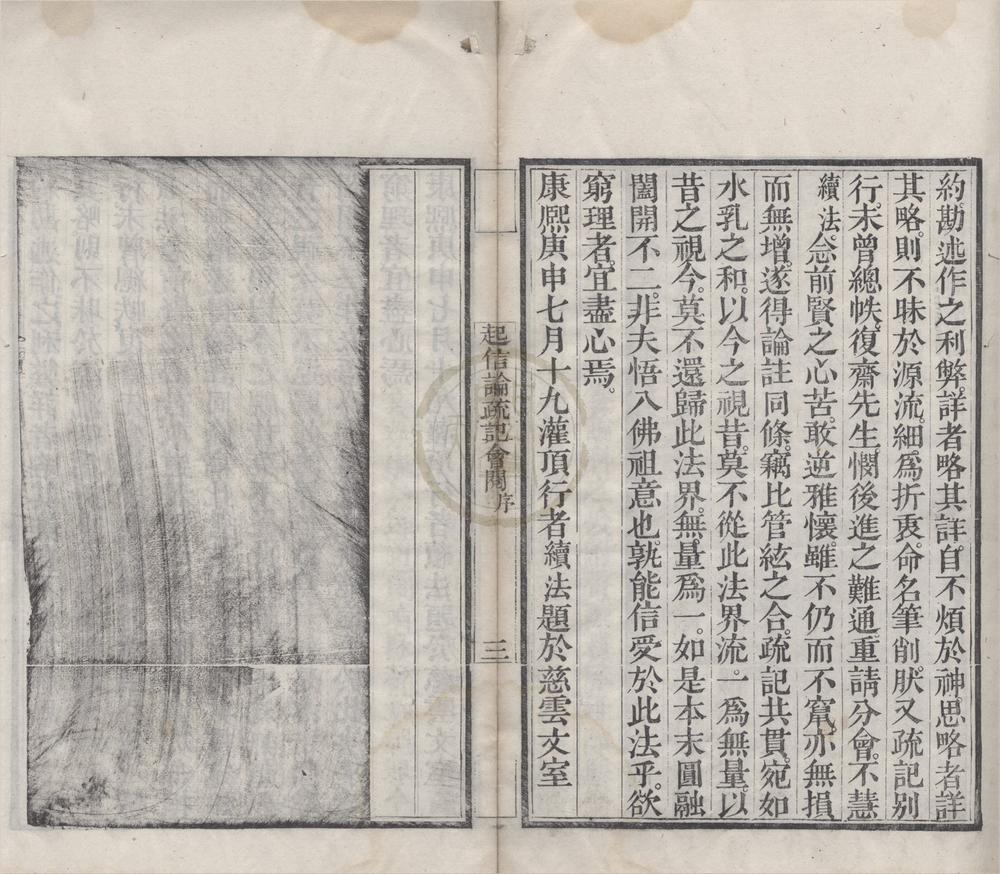 約。勘述作之利弊。詳者略其詳。自不煩於神。思略者詳
其略。則不昧於源流。細為折衷。命名筆削。肰又疏記別
行。未曾總帙。復齋先生憫後進之難通。重請分會。不慧
續法。念前賢之心苦。敢逆雅懷。雖不仍而不竄。亦無損
而無增。遂得論註同條。竊比管絃之合。疏記共貫。宛如
水乳之和。以今之視昔。莫不從此法界流。一為無量。以
昔之視今。莫不還歸此法界。無量為一。如是本末圓融
闔開不二。非夫悟入佛祖意也。孰能信受於此法乎。欲
窮理者。宜盡心焉。
康熙庚申七月十九灌頂行者續法題於慈雲文室
起信論疏記會閱 序 三